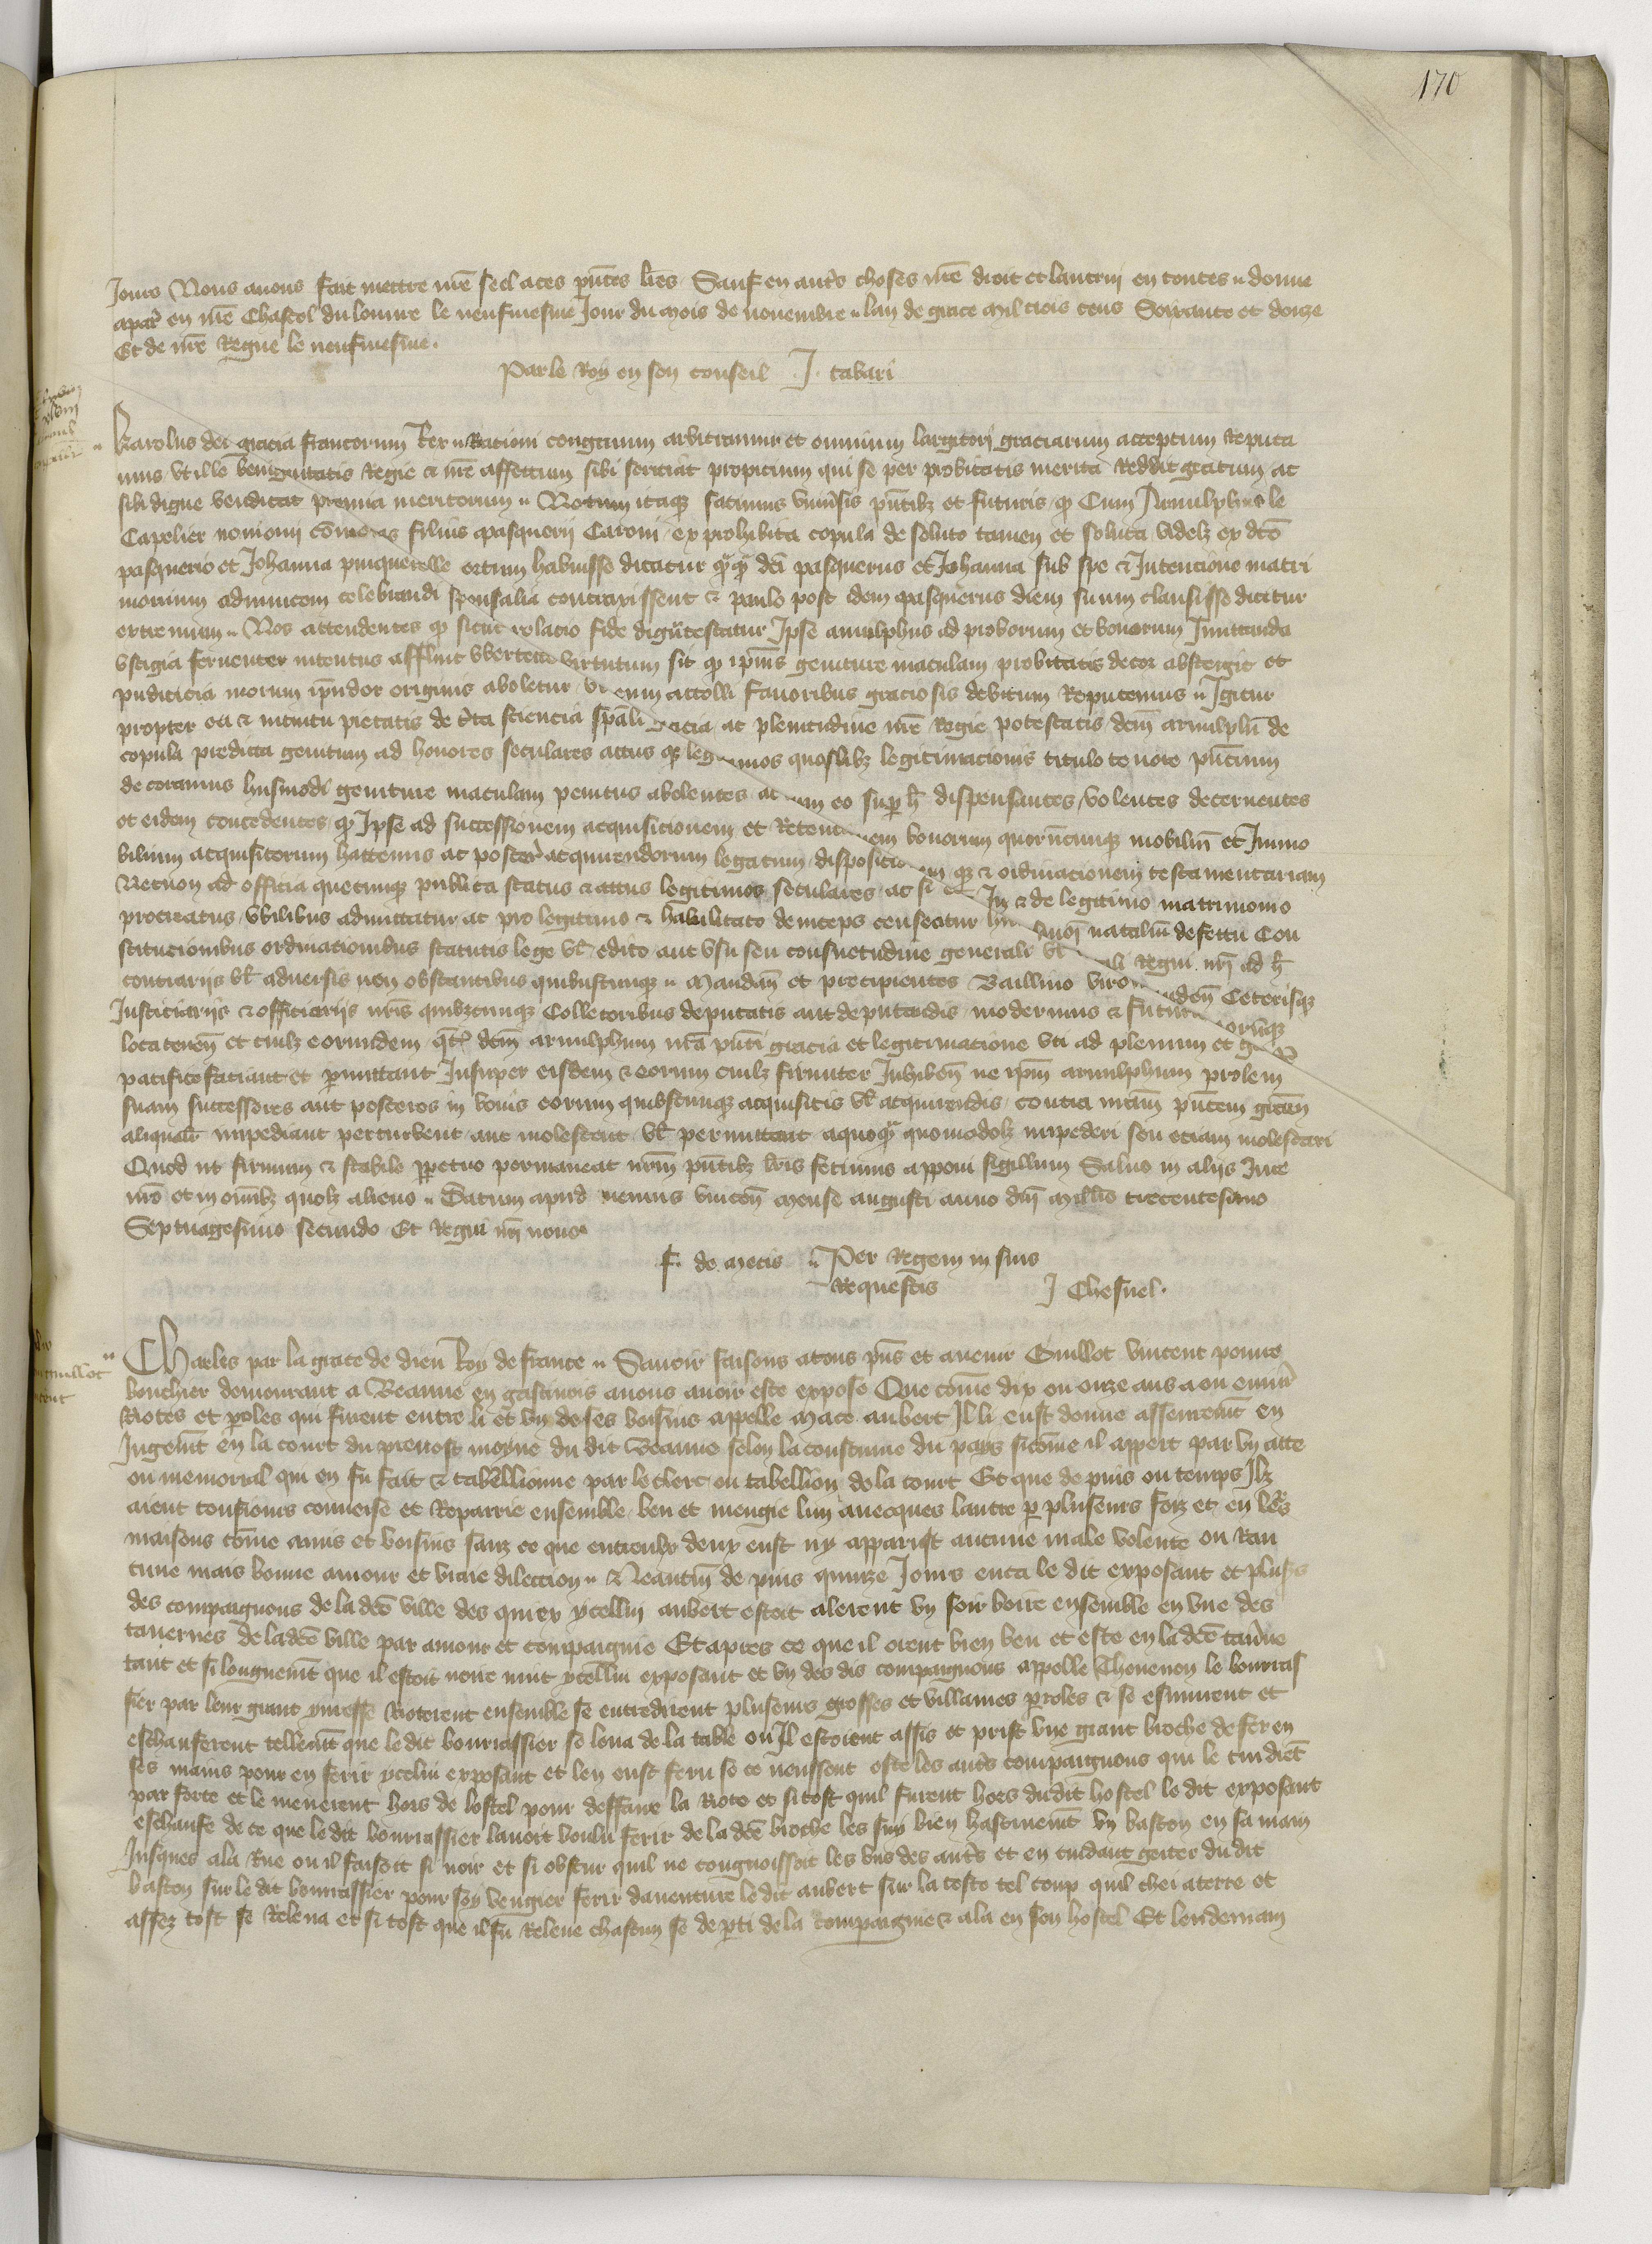 170
Jours Nous avons fait mettre nr̄e seel a ces p̄ntes lr̄es Sauf en autr̄s choses nr̄e droit et lautrui en toutes donne
a par̄ en nr̄e Chastel du louvre le neufuiesme Jour du mois de novembre lan de grace mil trois cens Soixante et douze
Et de nr̄e Regne le neufuiesme.
Par le Roy en son conseil J. tabari
Karolus dei gracia francorum Rex Racioni congruum arbitramur et omnium largitori graciarum acceptum Reputa
mus ut ille benignitatis Regie & nr̄e affectum sibi senciat propicium qui se per probitatis merita Reddit gratum ac
sibi digne vendicat premia meritorum Notum itaq̨ facimus univ̄sis p̄ntibz et futuris q̨ Cum Arnulphus le
Capelier filius pasquerii Caroni ex prohibita copula de soluto tamen et soluta videlz ex dc̄o
pasquerio et Johanna pinquerelle ortum habuisse dicatur q̄q̄ dc̄i pasquerus et Johanna sub spe & Intencione matri
monium adinvicem celebrandi sponsalia contraxissent & paulo post idem pasquerus diem suum clausisse dicitur
extremum Nos attendentes q̨ sicut relacio fide dig̃ testatur Ipse arnulphus ad proborum et bonorum Imitanda
vestigia ferventer intentus affluit ubertate virtutum sit q̨ ip̄ius geniture maculam probitatis decor abstergit et
pudicicia morum ip̄i pudor originis aboletur ut eum attolli favoribus graciosis debitum Reputemus Igitur
propter ea & intuitu pietatis de c̄ta sciencia sp̄ali gracia ac plenitudine nr̄e Regie potestatis dc̄m arnulphū de
copula predicta genitum ad honores seculares actus q̨ legitimos quoslibz legitimacionis titulo tenore p̄ncium
decoramus hui9modi geniture maculam penitus abolentes ac cum eo sup̄ h̄ dispensantes volentes decernentes
et eidem concedentes q̨ Ipse ad successionem acquisicionem et Retencionem bonorum quorūcunq̨ mobiliū et Immo
bilium acquisitorum hactenus ac poster̄ acquirendorum legatum disposicionem q̨ & ordinacionem testamentariam
Necnon ad officia quecunq̨ publica status & actus legitimos seculares ac si de legitimo matrimonio
procreatus ubilibus admittatur ac pro legitimo & habilitato deinceps censeatur nataliū defectu Con
stitucionibus ordinacionibus statutis lege vl̄ edicto aut usu seu consuetudine generali vl̄ Regni nr̄i ad h̄
contrariis vl̄ adversis non obstantibus quibuscunq̨ Mandan̄ et precipientes Baillivo Ceterisq̨
Justiciariis & officiariis nr̄is quibzcunq̨ Collectoribus deputatis aut deputandis modernis & futuris eorūq̨
loca tenen̄ et cuilz eorundem q̄t̄ dc̄m arnulphum nr̄a p̄nti gracia et legitimacione uti ad plenum et
pacifice faciant et p̄mittant Insuper eisdem & eorum cuilz firmiter Inhiben̄ ne ip̄m arnulphum prolem
suam successores aut posteros in bonis eorum quibscunq̨ acquisitis vl̄ acquirendis contra nr̄am p̄ntem gr̄am
aliqual̄r impediant perturbent aut molestent vl̄ permittant a quoq̄ quomodolz impediri seu eciam molestari
Quod ut firmum & stabile p̄petuo permaneat nr̄m p̄ntibz lr̄is fecimus apponi sigillum Salvo in aliis Jure
nr̄o et in om̄ibz quolz alieno Datum apud nemus vincen̄ Mense augusti anno dn̄i Mill̄io trecentesimo
Septuagesimo secundo Et Regni nr̄i nono
f. de Metis Per Regem in suis
Requestis J Chesnel.
Guillot
vincent
Charles par la grace de dieu Roy de france Savoir faisons a tous p̄ns et avenir Guillot vincent povre
bouchier demourant a Beaune en gastinois avons avoir este expose Que cōme dix ou onze ans a ou envir̄
Riotes et p̄oles qui furent entre li et un de ses voisins appelle Mace aubert Il li eust donne asseuremt̄ en
Jugemt̄ en la court du prevost moyne du dit Beaune selon la coustume du pays sicōme il appert par un acte
ou memorial qui en fu fait & tabellionne par le clerc ou tabellion de la court Et que depuis ou temps Ilz
aient tousiours converse et Reparrie ensemble beu et mengie lun avecques lautre p̄ pluseurs foiz et en le's
maisons cōme amis et voisins sanz ce que entreulx deux eust ny apparust aucune male volente ou Ran
cune mais bonne amour et vraie dilection Neantm̄ depuis quinze Jours enca le dit exposant et plus's
des compaignons de la dc̄e ville des quiex ycellui aubert estoit alerent un soir boire ensemble en une des
tavernes de la dc̄e ville par amour et compaignie Et apres ce que il orent bien beu et este en la dc̄e tav̄ne
tant et si longuemt̄ que il estoit noire nuit ycellui exposant et un des dis compaignons appelle Thevenon le bourras
sier par leur grant yvresse Rioterent ensemble se entredirent pluseurs grosses et villaines p̄oles & se esmurent et
eschauferent tellemt̄ que le dit bourrassier se leva de la table ou Il estoient assis et prist une grant broche de fer en
ses mains pour en ferir ycelui exposant et len eust feru se ce neussent este les autr̄s compaignons qui le tindrēt
par force et le menerent hors de lostel pour deffaire la Riote et si tost quil furent hors dudit hostel le dit exposant
eschaufe de ce que le dit bourrassier lavoit voulu ferir de la dc̄e broche les suy bien hastivemt̄ un baston en sa main
Jusques a la Rue ou il faisoit si noir et si obscur quil ne congnoissoit les uns des autr̄s et en cuidant geiter du dit
baston sur le dit bourrassier pour soy vengier ferir daventure le dit aubert sur la teste tel coup quil chei a terre et
assez tost se Releva et si tost que il fu Releve chascun se dep̄ti de la compaignie & ala en son hostel Et lendemain